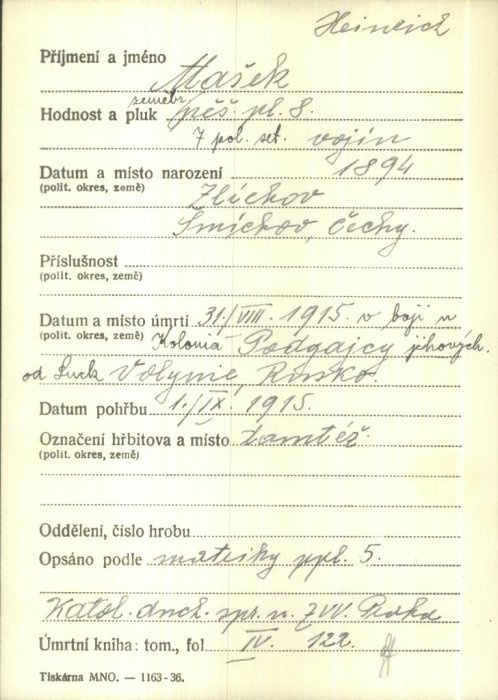 Heinrich
Příjmení a jméno
Mašek
zeměbr.
Hodnost a pluk pěš. pl. 8.
7 pol. set. vojín
Datum a místo narození 1894
(polit. okres, země)
Zlíchov
Smíchov, Čechy.
Příslušnost
(polit. okres, země)
Datum a místo úmrtí 31./VIII. 1915 v boji u
(polit. okres, země) Kolonia Podgajcy jihových.
od Luck Volynie, Rusko.
Datum pohřbu 1./IX. 1915.
Označení hřbitova a místo tamtéž.
(polit. okres, země)
Oddělení, číslo hrobu
Opsáno podle matriky ppl. 5.
Katol. duch. spr. u ZVV. Praha
Úmrtní kniha: tom., fol IV. 122.
Tiskárna MNO. — 1163-36.